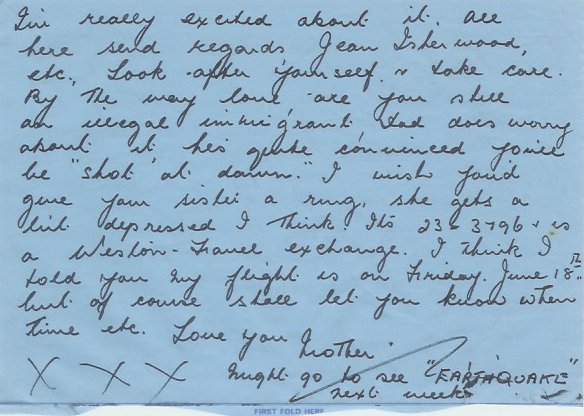 I'm really excited about it. All
here send regards Jean Isherwood,
etc., Look after yourself, & take care.
By the way love are you still
an illegal immigrant Dad does worry
about it he's quite convinced you'll
be "shot at dawn." I wish you'd
give your sister a ring, she gets a
bit depressed I think. Its 23-3796 & is
a Weston-Favel exchange. I think I
told you my flight is on Friday. June 18th.
but of course shall let you know when
time etc. Love you Mother.
X X X might go to see "EARTHQUAKE"
next week.
FIRST FOLD HERE